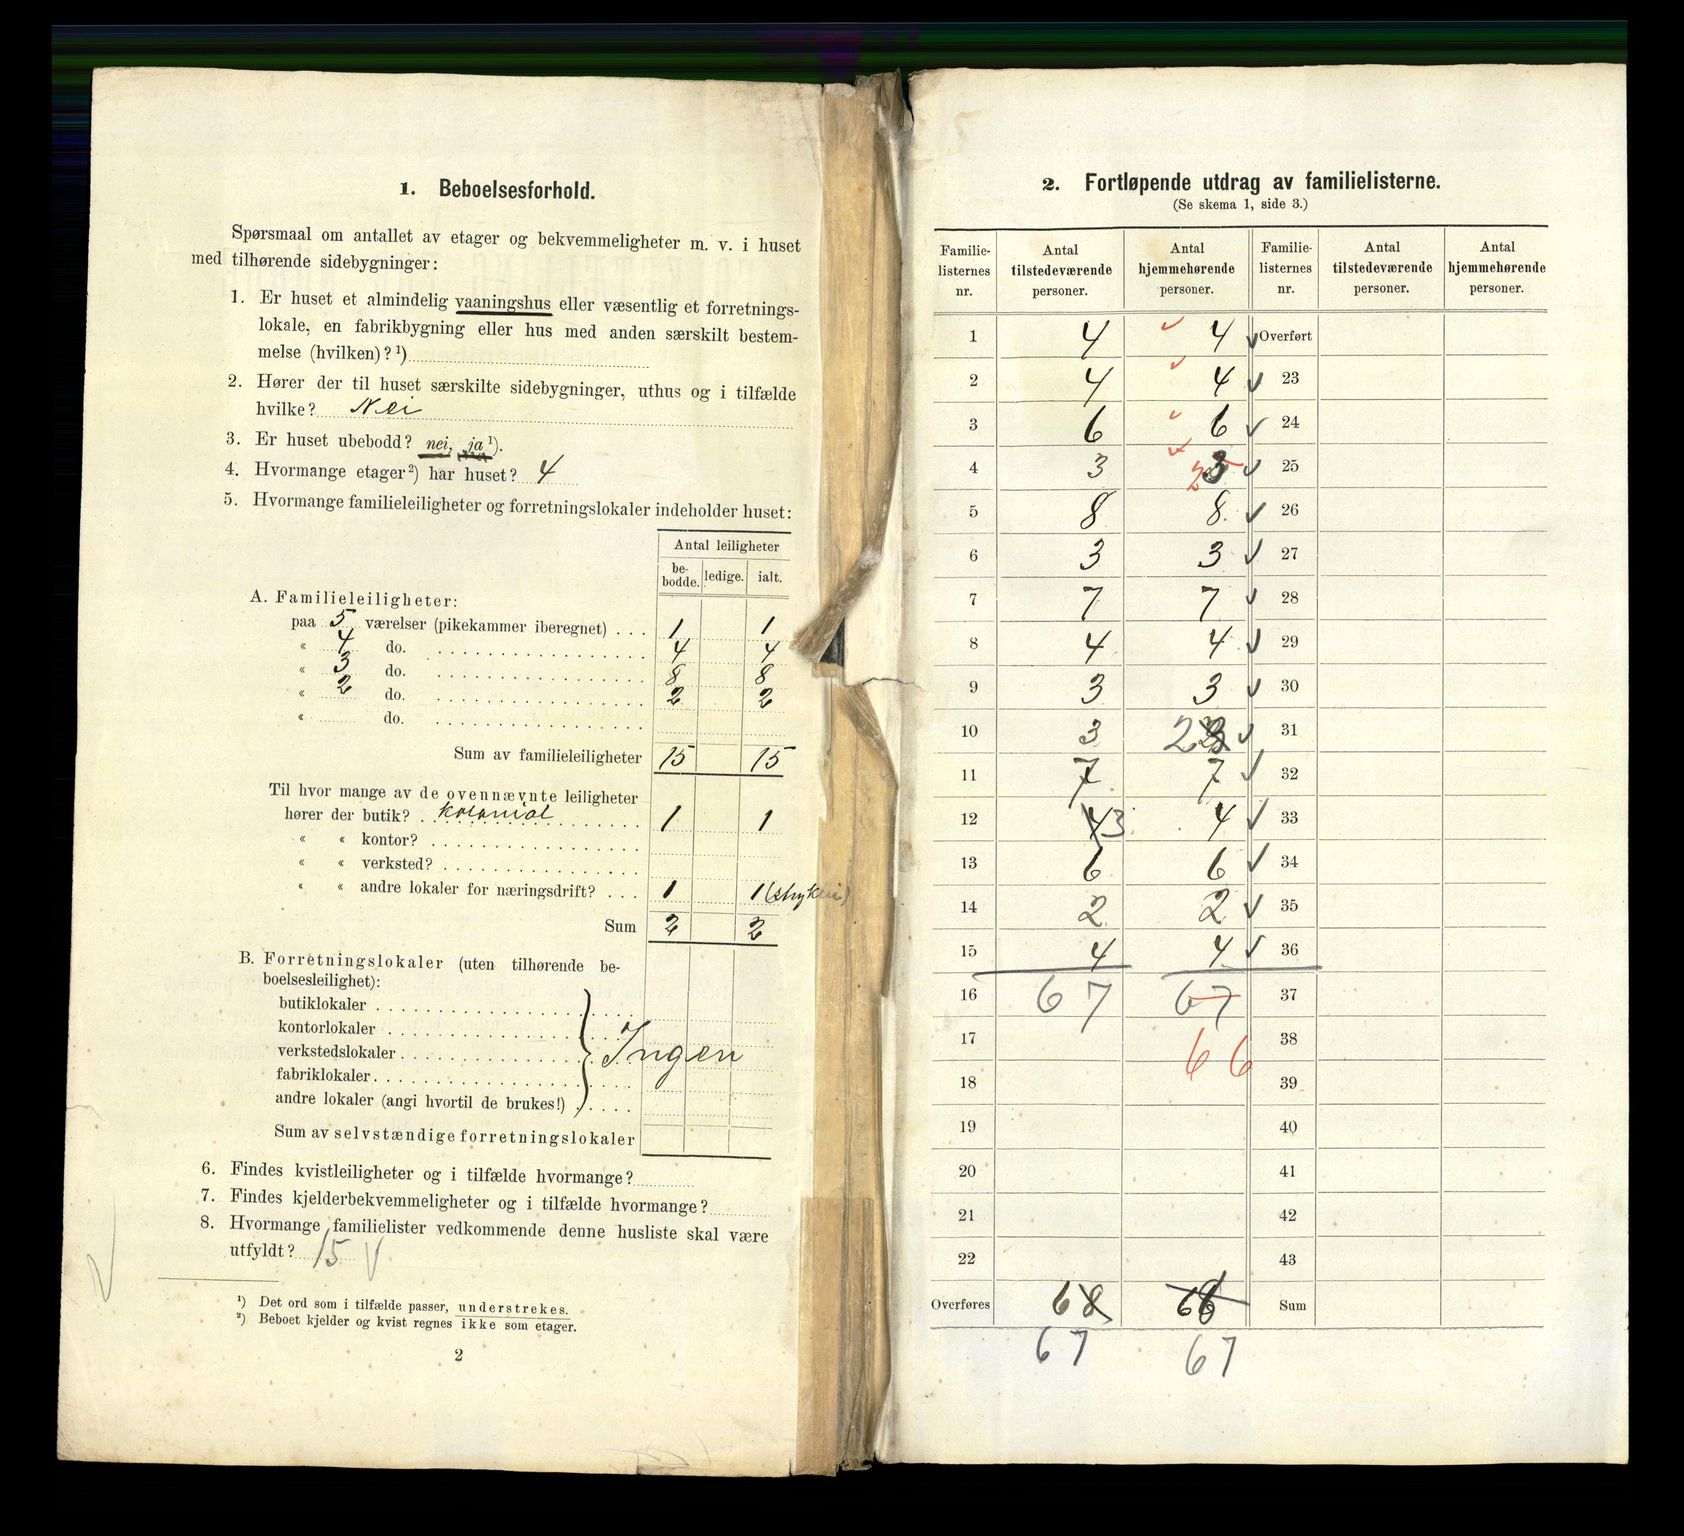 1. Beboelsesforhold.
Spørsmaal om antallet av etager og bekvemmeligheter m. v. i huset
med tilhørende sidebygninger:
1. Er huset et almindelig vaaningshus eller væsentlig et forretnings-
lokale, en fabrikbygning eller hus med anden særskilt bestem-
melse (hvilken)?¹)
2. Hører der til huset særskilte sidebygninger, uthus og i tilfælde
hvilke? Nei
3. Er huset ubebodd? nei, ja¹).
4. Hvormange etager²) har huset? 4
5. Hvormange familieleiligheter og forretningslokaler indeholder huset:
Antal leiligheter
be-bodde. ledige. ialt.
A. Familieleiligheter:
paa 5 værelser (pikekammer iberegnet) . . . 1 1
« 4 do. 4 4
« 3 do. 8 8
« 2 do. 2 2
« do.
Sum av familieleiligheter 15 15
Til hvor mange av de ovennævnte leiligheter
hører der butik? kolonial 1 1
« « kontor?
« « verksted?
« « andre lokaler for næringsdrift? . . . 1 1
Sum 2 2
B. Forretningslokaler (uten tilhørende be-
boelsesleilighet):
butiklokaler
kontorlokaler
verkstedslokaler Ingen
fabriklokaler
andre lokaler (angi hvortil de brukes!)
Sum av selvstændige forretningslokaler
6. Findes kvistleiligheter og i tilfælde hvormange?
7. Findes kjelderbekvemmeligheter og i tilfælde hvormange?
8. Hvormange familielister vedkommende denne husliste skal være
utfyldt? 15
¹) Det ord som i tilfælde passer, understrekes.
²) Beboet kjelder og kvist regnes ikke som etager.
2
2. Fortløpende utdrag av familielisterne.
(Se skema 1, side 3.)
Familie-listernes nr. Antal tilstedeværende personer. Antal hjemmehørende personer. Familie-listernes nr. Antal tilstedeværende personer. Antal hjemmehørende personer.
1 4 4 Overført
2 4 4 23
3 6 6 24
4 3 2 3 25
5 8 8 26
6 3 3 27
7 7 7 28
8 4 4 29
9 3 3 30
10 3 2 3 31
11 7 7 32
12 4 3 4 33
13 6 6 34
14 2 2 35
15 4 4 36
16 67 67 37
17 66 38
18 39
19 40
20 41
21 42
22 43
Overføres 68 66 Sum
67 67